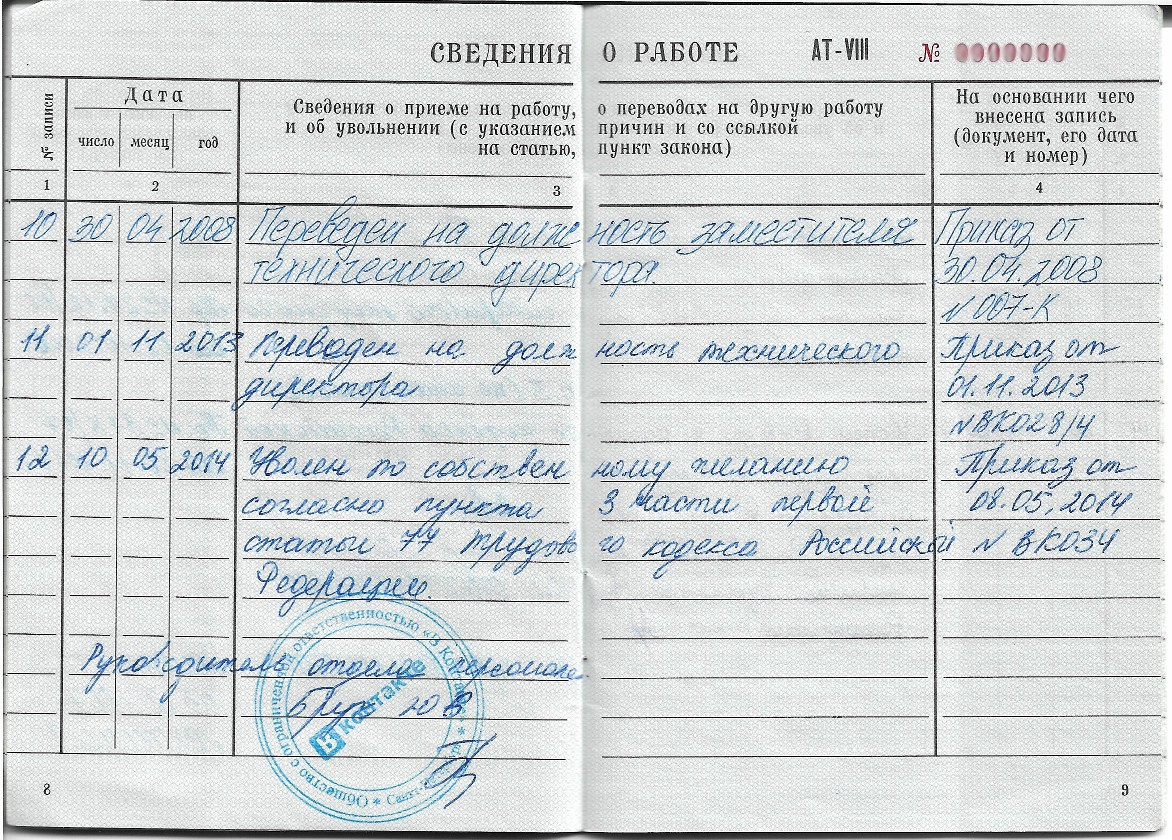 СВЕДЕНИЯ О РАБОТЕ АТ-VIII № 0000000
№ записи
Дата
число месяц год
Сведения о приеме на работу, о переводах на другую работу
и об увольнении (с указанием причин и со ссылкой
на статью, пункт закона)
На основании чего
внесена запись
(документ, его дата
и номер)
1 2 3 4
10 30 04 2008 Переведен на должность заместителя Приказ от
технического директора. 30.04.2008
N 007-К
11 01 11 2013 Переведен на должность технического Приказ от
директора 01.11.2013
N ВК028/4
12 10 05 2014 Уволен по собственному желанию Приказ от
согласно пункта 3 части первой 08.05.2014
статьи 77 Трудового кодекса Российской N ВК034
Федерации.
Руководитель отдела персонала
Ю В
Общество с ограниченной ответственностью «В Контакте» * Санкт-Петербург *
В контакте
8 9